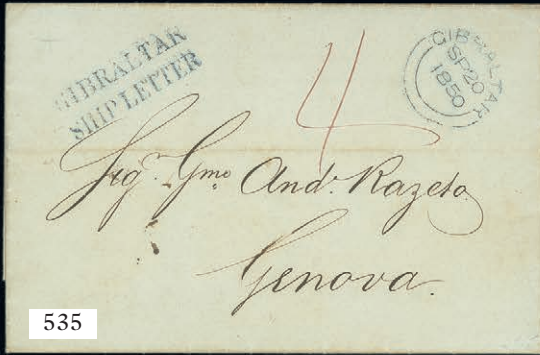 GIBRALTAR
SHIP LETTER
GIBRALTAR
SP 20
1850
4
Sigr. Gmo And. Razeto
Genova.
535